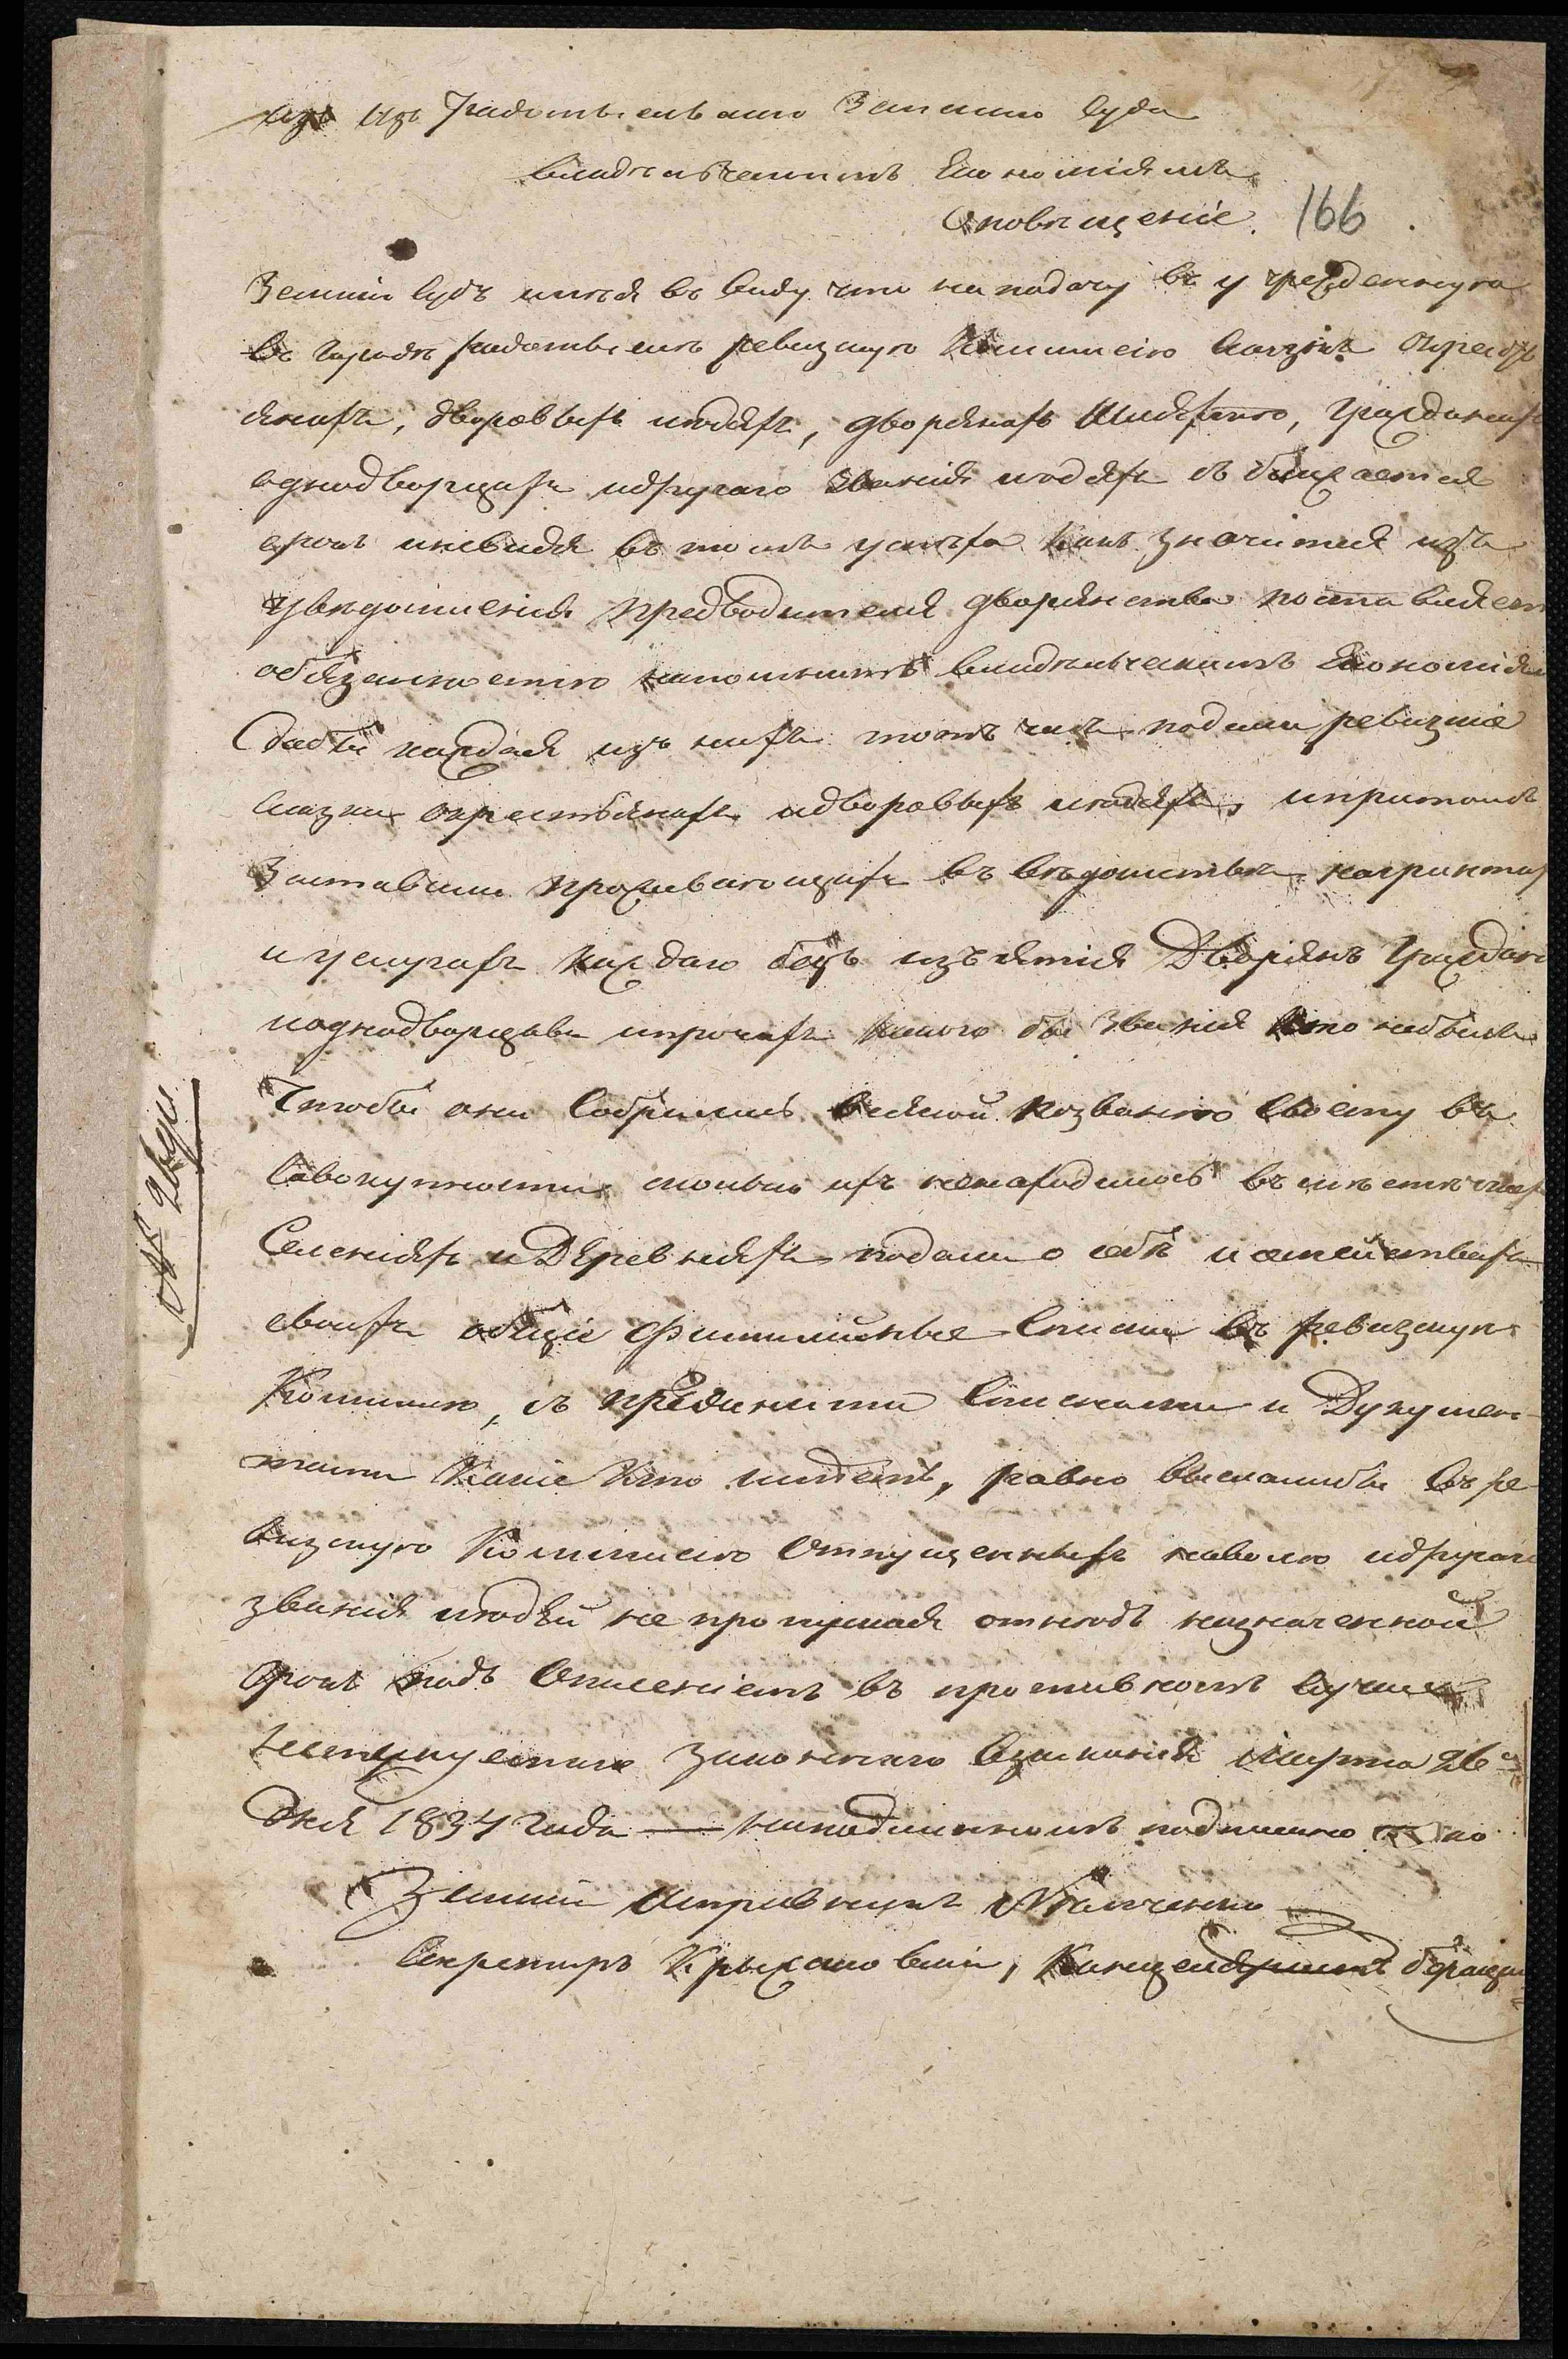 Изъ Радомысльскаго Земскаго Суда
владѣльческимъ Економіямъ
Оповѣщеніе. 166
Земскій Судъ имѣя въ виду что на подачу въ учрежденную
въ городѣ Радомыслѣ ревизную Коммисію сказокъ о крестья
янахъ, дворовыхъ людяхъ, дворянахъ шляхтою, гражданахъ
однодворцахъ и другаго званія людяхъ сближается
срокъ и невидя въ томъ успѣха какъ значится изъ
увѣдомленія предводителя дворянства поставляетъ
обязанностію напомнить владѣльческимъ Економіям
дабы каждая изъ нихъ тотъ часъ подали ревизкіе
сказки о крестьянахъ и дворовыхъ людяхъ, и притомъ
заставили проживающихъ въ вѣдомствѣ на грунтах
и услугахъ каждаго безъ изъятія Дворянъ Граждан
и однодворцовъ и прочихъ какого бы званія кто небылъ
Чтобы они собрались всякой по званію своему въ
совокупности сколько ихъ ненаходилось въ мѣстечках
Селеніяхъ и Деревняхъ подали о себѣ и семействахъ
своихъ общіе фамилійные списки въ ревизную
Комисию, съ прежними списками и Докумен-
тами какіе кто имѣетъ, равно высылалибы въ ре-
визную Коммисію отпущенныхъ наволю и другаго
званія людей не пропуская отнюдь назначенной
срокъ подъ опасеніемъ въ противномъ случаѣ
законнаго взысканія Марта 26
Дня 1834 Года — на подлинномъ подписано
Земскій Исправникъ
Секретарь Крыжановскій, Канцеляристъ
№ 26